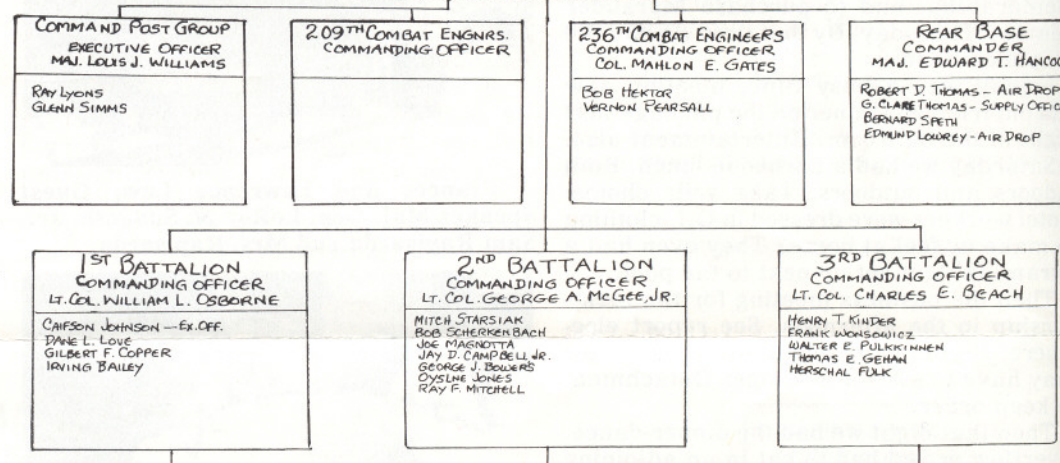 COMMAND POST GROUP
EXECUTIVE OFFICER
MAJ. LOUIS J. WILLIAMS
RAY LYONS
GLENN SIMMS
209TH COMBAT ENGNRS.
COMMANDING OFFICER
236TH COMBAT ENGINEERS
COMMANDING OFFICER
COL. MAHLON E. GATES
BOB HEKTOR
VERNON PEARSALL
REAR BASE
COMMANDER
MAJ. EDWARD T. HANCOC
ROBERT D. THOMAS - AIR DROP
G. CLARE THOMAS - SUPPLY OFFIC
BERNARD SPETH
EDMUND LOWREY - AIR DROP
1ST BATTALION
COMMANDING OFFICER
LT. COL. WILLIAM L. OSBORNE
CAIFSON JOHNSON - EX. OFF.
DANE L. LOVE
GILBERT F. COPPER
IRVING BAILEY
2ND BATTALION
COMMANDING OFFICER
LT. COL. GEORGE A. MCGEE, JR.
MITCH STARSIAK
BOB SCHERKENBACH
JOE MAGNOTTA
JAY D. CAMPBELL JR.
GEORGE J. BOWERS
OYSLNE JONES
RAY F. MITCHELL
3RD BATTALION
COMMANDING OFFICER
LT. COL. CHARLES E. BEACH
HENRY T. KINDER
FRANK WONSOWICZ
WALTER E. PULKKINNEN
THOMAS E. GEHAN
HERSCHAL FULK